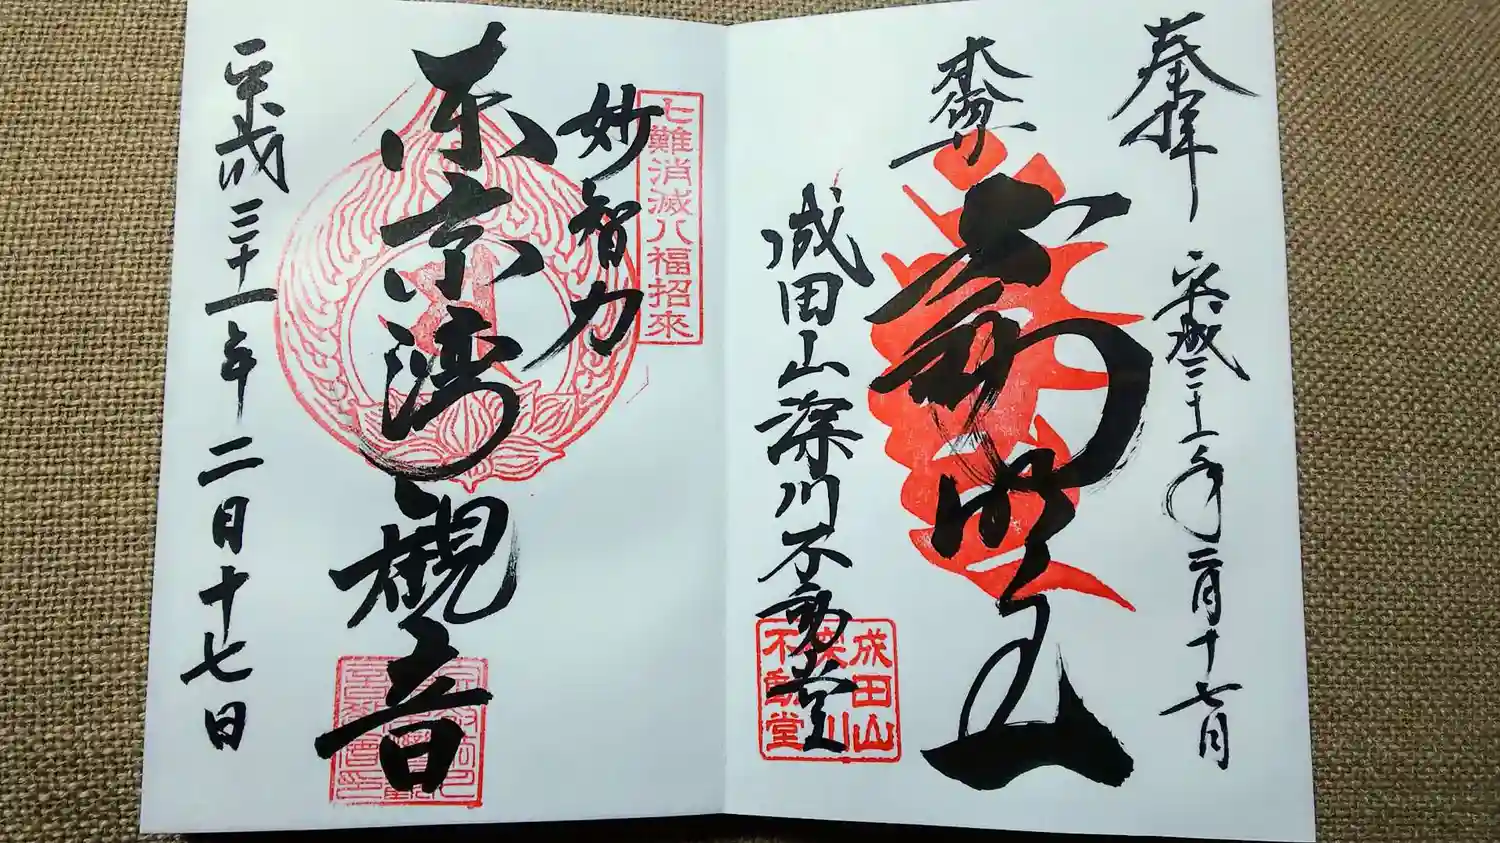 奉拝
平成三十一年二月十七日
本尊
成田山深川不動堂
成田山
深川
不動堂
七難消滅八福招来
妙智力
東京湾観音
平成三十一年二月十七日